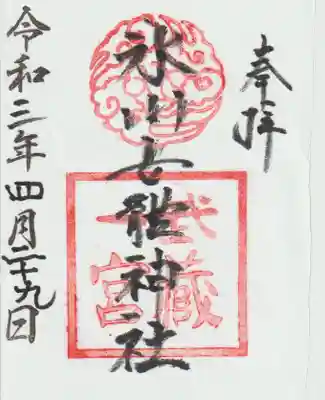 奉拝
氷川女體神社
武蔵
一宮
令和三年四月二十九日